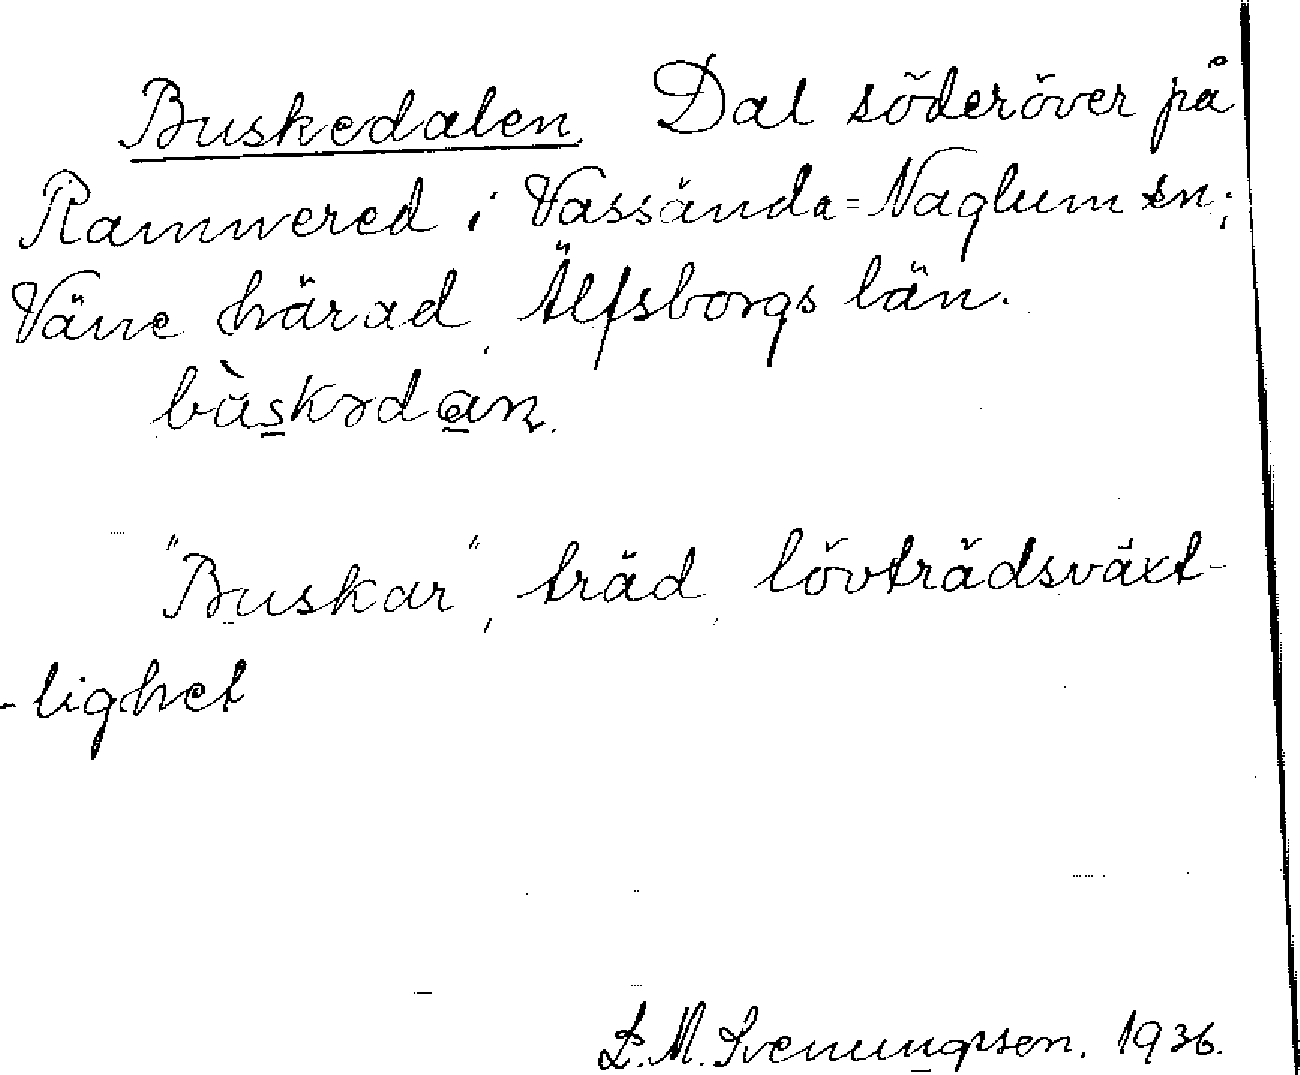 Buskedalen. Dal söderöver på
Ramnered i Vassända=Naglum sn;
Väne härad, Älfsborgs län.
bùskədan.
"Buskar", träd, lövträdsväxt-
-lighet
L. M. Svenungsson. 1936.